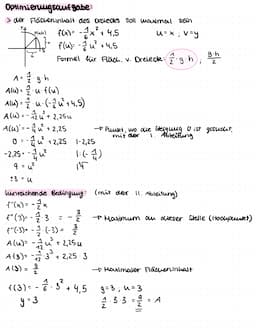 Optimierungsaufgabe:
→ der Flächeninhalt des Dreiecks soll maximal sein
f(x) = -1/6 x² + 4,5    u = x, v = y
f(u) = -1/6 u² + 4,5
Formel für Fläch. v. Dreieck: 1/2 · g · h, g·h/2
A = 1/2 g · h
A(u) = 1/2 u · f(u)
A(u) = 1/2 u · (-1/6 u² + 4,5)
A(u) = -1/12 u³ + 2,25u
A(u)' = -1/4 u² + 2,25 → Punkt, wo die Steigung 0 ist gesucht, mit der 1. Ableitung
0 = -1/4 u² + 2,25 |-2,25
-2,25 = -1/4 u² |:(-1/4)
9 = u² |√
±3 = u
Hinreichende Bedingung (mit der 2. Ableitung)
f''(x) = -1/2 x
f''(3) = -1/2 · 3 = -3/2 → Maximum an dieser Stelle (Hochpunkt)
f''(-3) = -1/2 · (-3) = 3/2
A(u) = -1/12 u³ + 2,25u
A(3) = -1/12 · 3³ + 2,25 · 3
A(3) = 9/2 → Maximaler Flächeninhalt
f(3) = -1/6 · 3² + 4,5    y = 3, u = 3
y = 3    1/2 · 3 · 3 = 9/2 = A